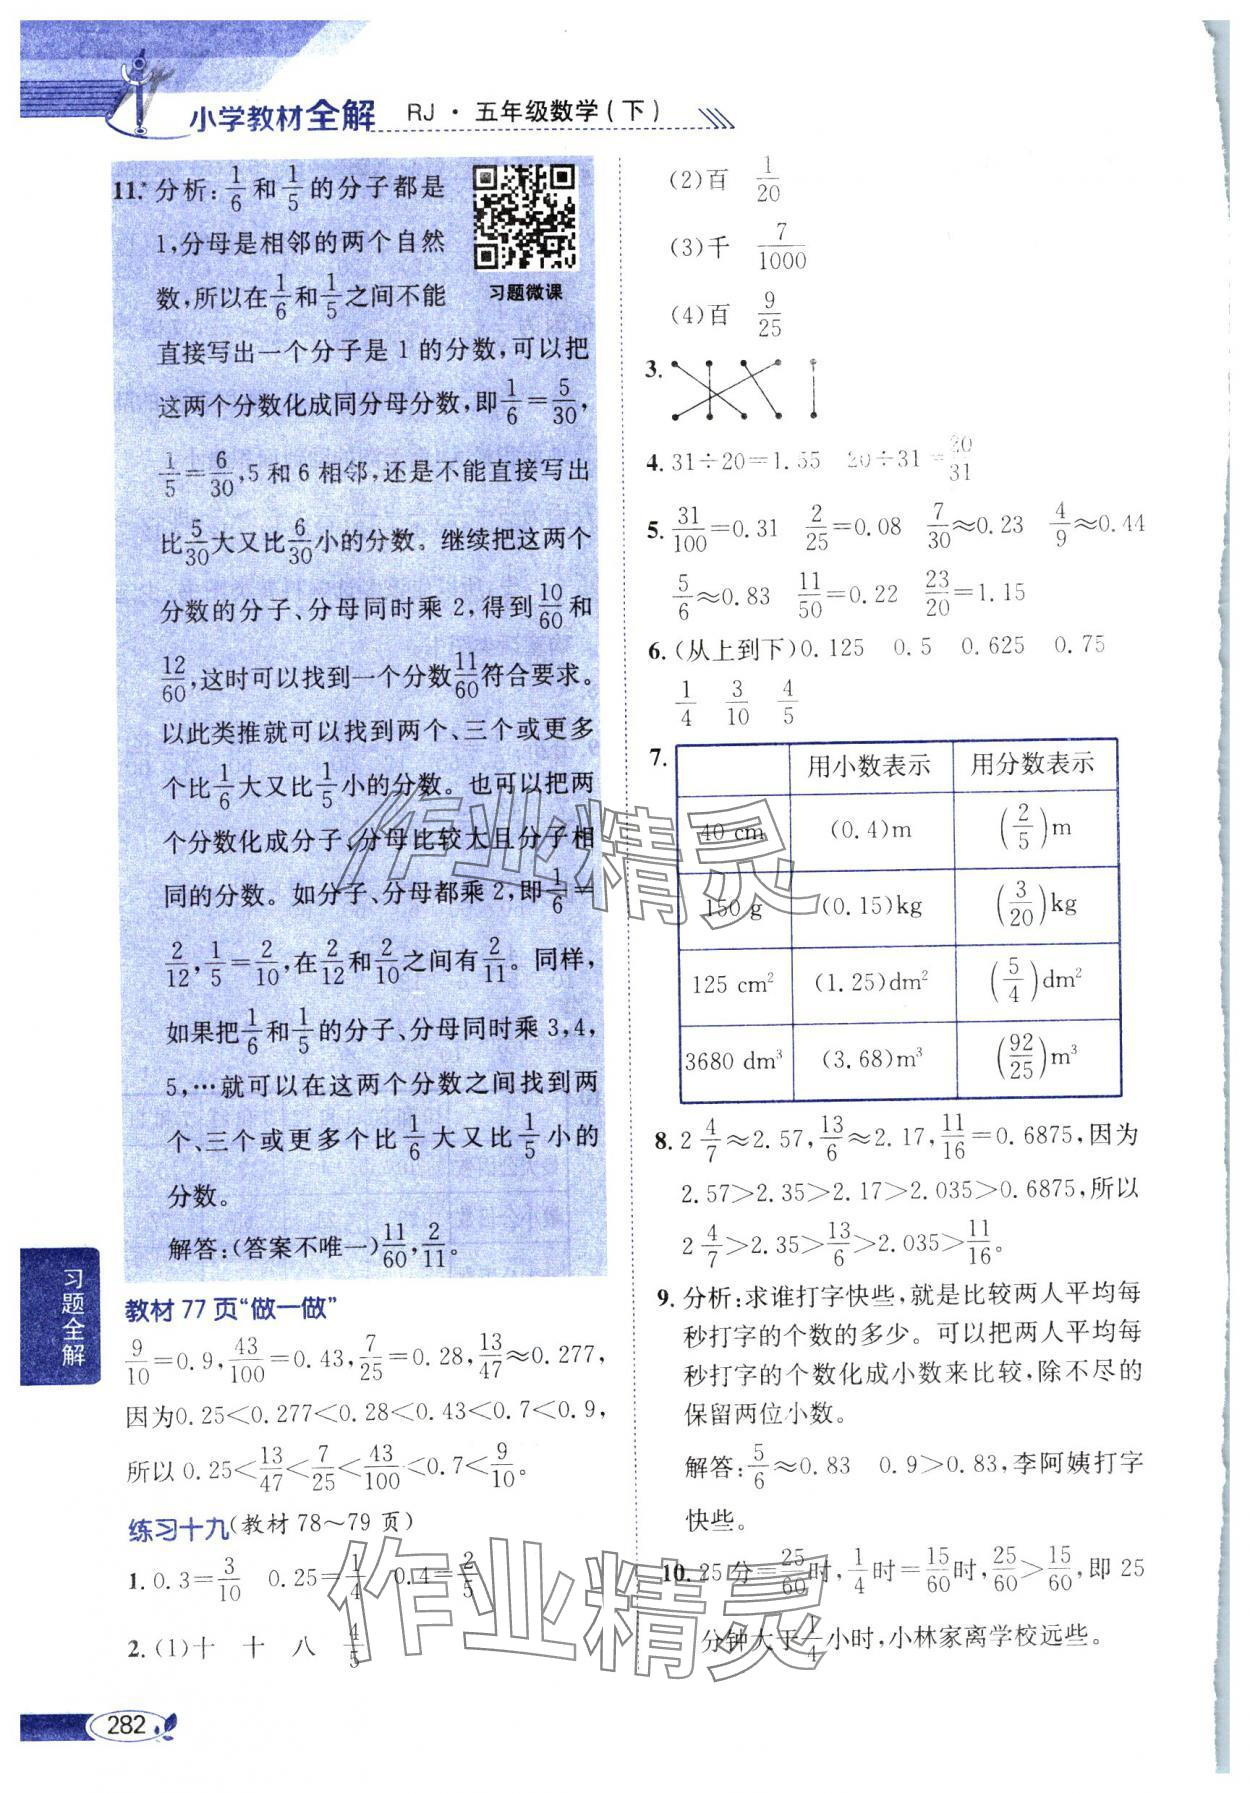 小学教材全解 RJ·五年级数学(下)
11.* 分析:1/6和1/5的分子都是
1,分母是相邻的两个自然
数,所以在1/6和1/5之间不能
习题微课
直接写出一个分子是 1 的分数,可以把
这两个分数化成同分母分数,即1/6=5/30,
1/5=6/30,5 和 6 相邻,还是不能直接写出
比5/30大又比6/30小的分数。继续把这两个
分数的分子、分母同时乘 2,得到10/60和
12/60,这时可以找到一个分数11/60符合要求。
以此类推就可以找到两个、三个或更多
个比1/6大又比1/5小的分数。也可以把两
个分数化成分子、分母比较大且分子相
同的分数。如分子、分母都乘 2,即1/6=
2/12,1/5=2/10,在2/12和2/10之间有2/11。同样,
如果把1/6和1/5的分子、分母同时乘 3,4,
5,…就可以在这两个分数之间找到两
个、三个或更多个比1/6大又比1/5小的
分数。
解答:(答案不唯一)11/60,2/11。
教材 77 页“做一做”
9/10=0.9,43/100=0.43,7/25=0.28,13/47≈0.277,
因为0.25<0.277<0.28<0.43<0.7<0.9,
所以 0.25<13/47<7/25<43/100<0.7<9/10。
练习十九(教材 78~79 页)
1. 0.3=3/10 0.25=1/4 0.4=2/5
2. (1)十 十 八 4/5
(2)百 1/20
(3)千 7/1000
(4)百 9/25
3.
4. 31÷20=1.55 20÷31=20/31
5. 31/100=0.31 2/25=0.08 7/30≈0.23 4/9≈0.44
5/6≈0.83 11/50=0.22 23/20=1.15
6. (从上到下)0.125 0.5 0.625 0.75
1/4 3/10 4/5
7.
用小数表示 用分数表示
40 cm (0.4)m (2/5)m
150 g (0.15)kg (3/20)kg
125 cm² (1.25)dm² (5/4)dm²
3680 dm³ (3.68)m³ (92/25)m³
8. 2 4/7≈2.57,13/6≈2.17,11/16=0.6875,因为
2.57>2.35>2.17>2.035>0.6875,所以
2 4/7>2.35>13/6>2.035>11/16。
9. 分析:求谁打字快些,就是比较两人平均每
秒打字的个数的多少。可以把两人平均每
秒打字的个数化成小数来比较,除不尽的
保留两位小数。
解答:5/6≈0.83 0.9>0.83,李阿姨打字
快些。
10. 25分=25/60时,1/4时=15/60时,25/60>15/60,即 25
分钟大于1/4小时,小林家离学校远些。
习题全解
282
作业精灵
作业精灵